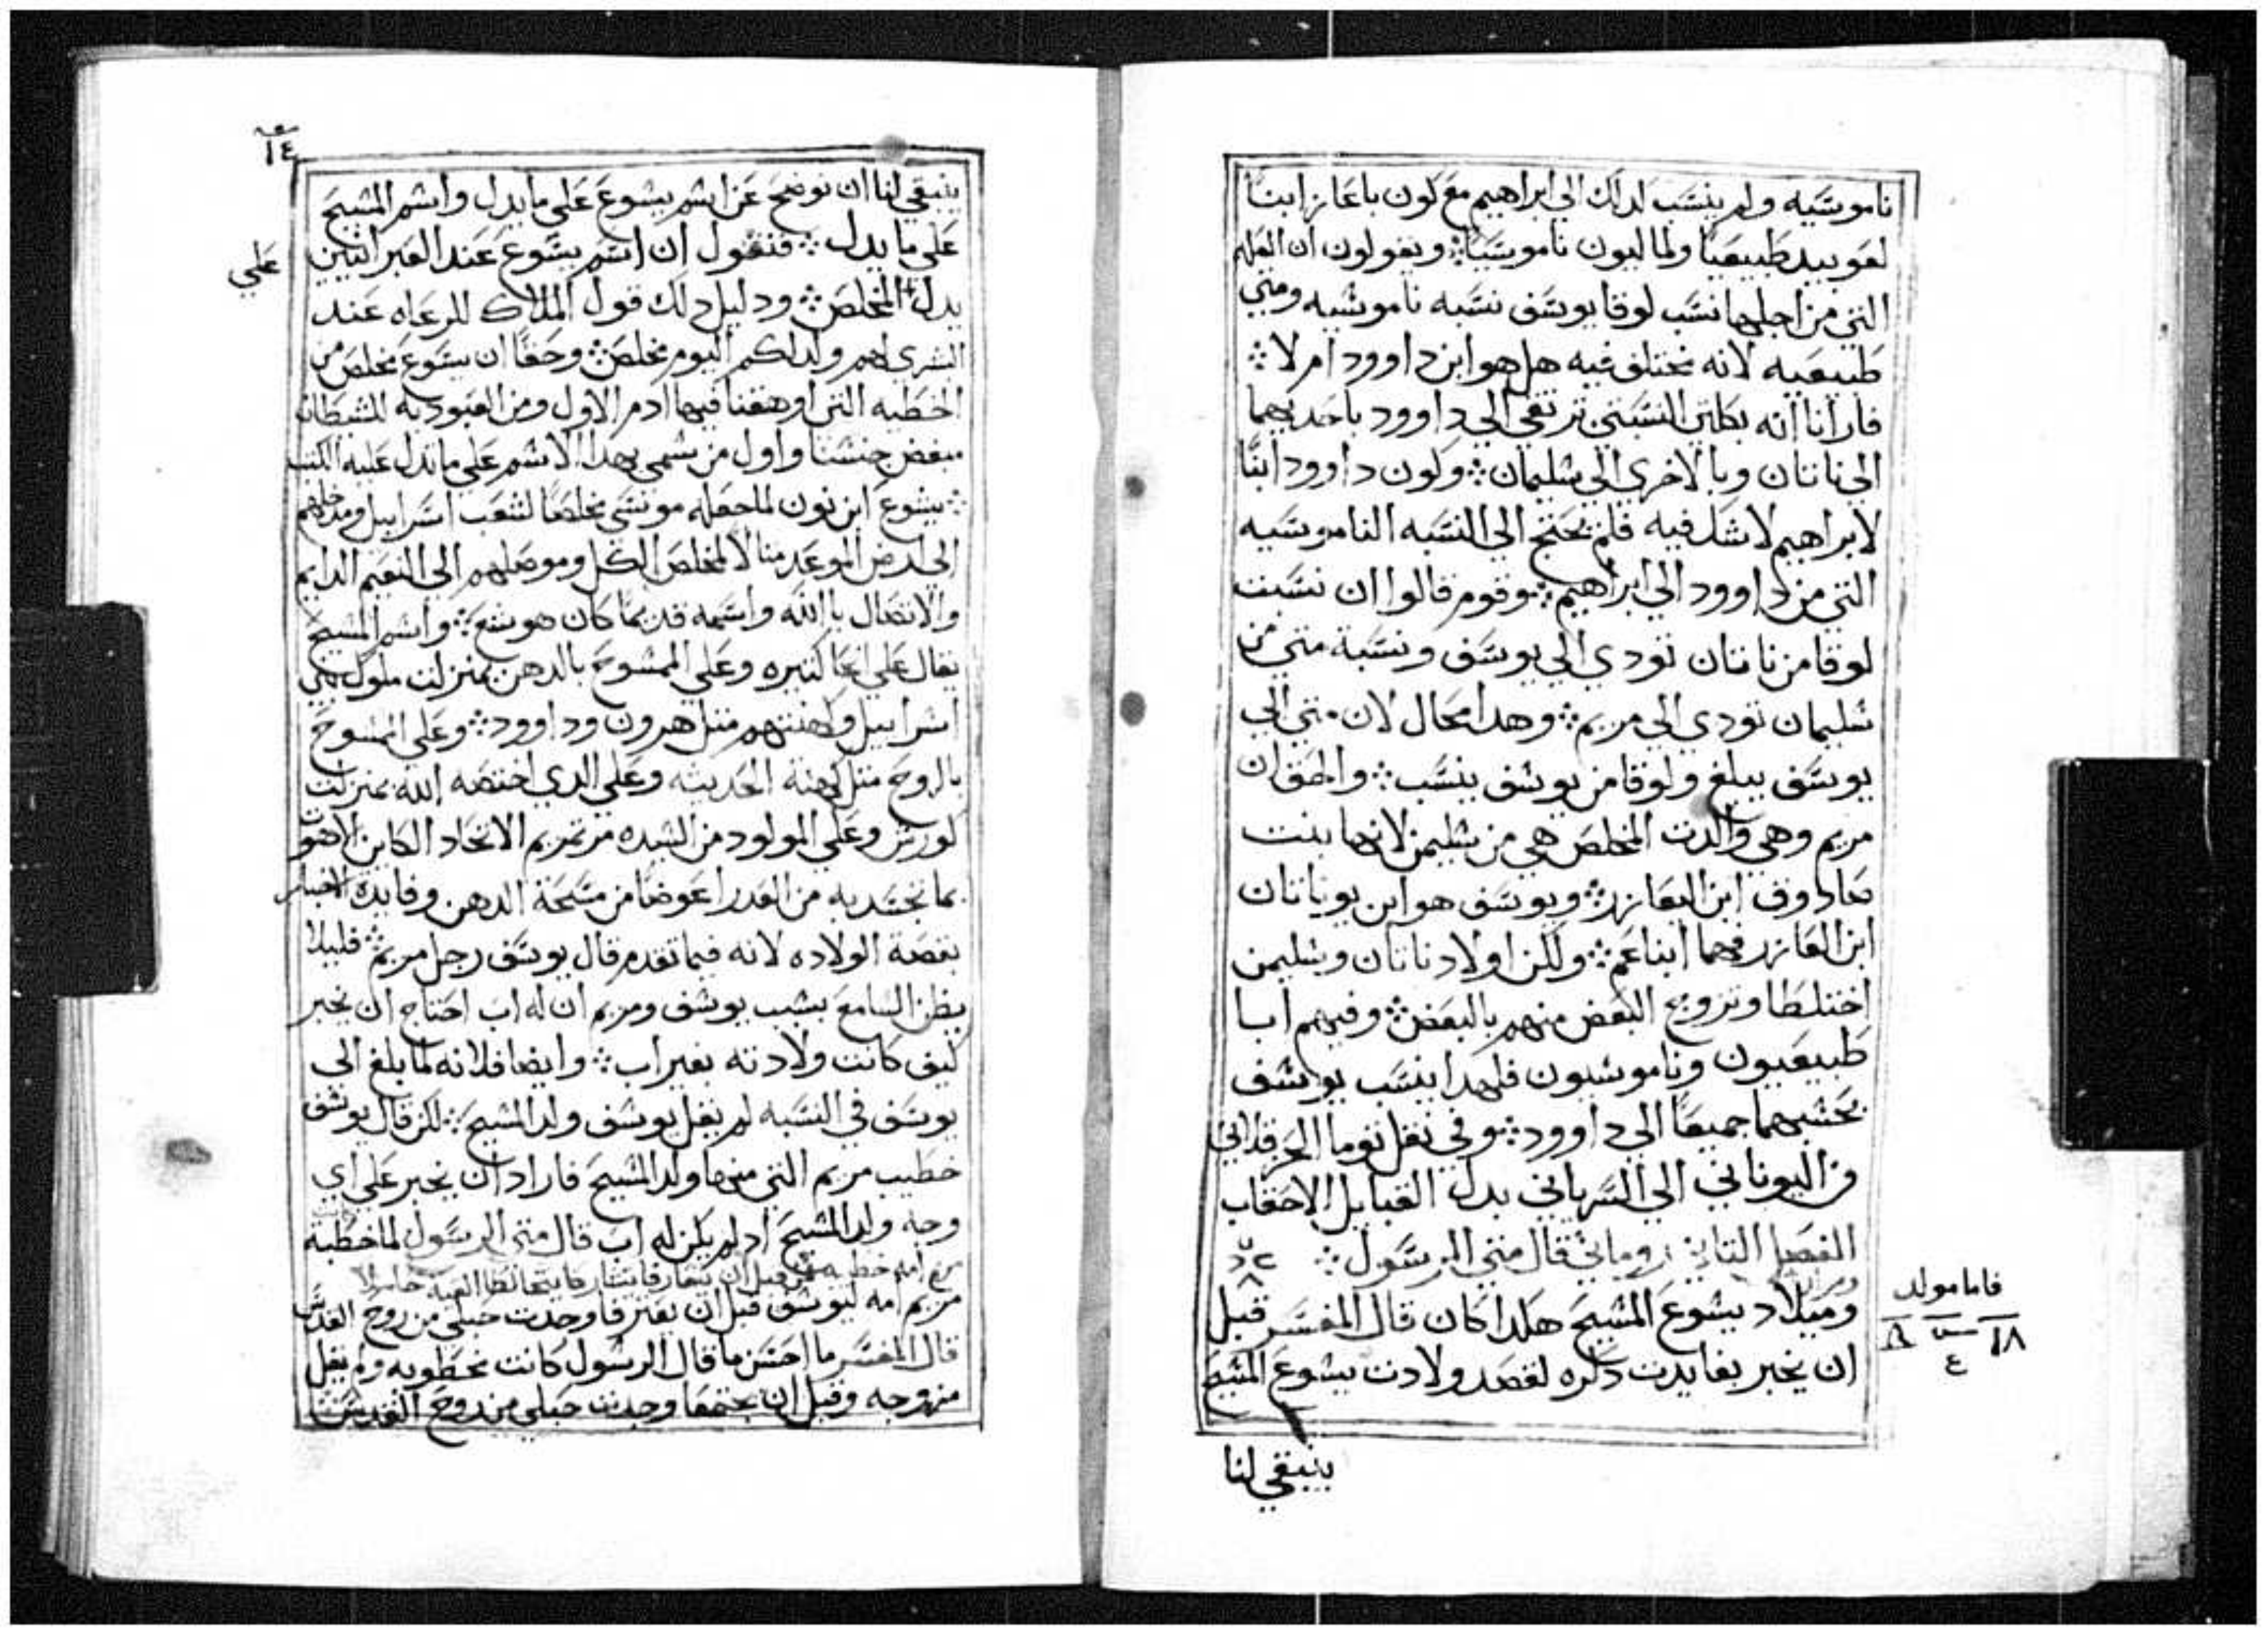 ناموسيه ولم ينسب لدلك الي ابراهيم مع كون باعاز ابنا
لعوبيد طبيعيا ولماليون ناموسيا ويقولون ان العله
التي من اجلها نسب لوقا يوسف نسبه ناموسيه ومتي
طبيعيه لانه مختلف فيه هل هو ابن داوود ام لا
فارانا انه بكلتي النسبتين ترتقي الي داوود باحديهما
الي ناتان وبالاخري الي سليمان ولكون داوود ابنا
لابراهيم لا شك فيه فلم يحتج الي النسبه الناموسيه
التي من داوود الي ابراهيم وقوم قالوا ان نسبت
لوقا من ناتان تودي الي يوسف ونسبة متي من
سليمان تودي الي مريم وهدا محال لان متي الي
يوسف يبلغ ولوقا من يوسف ينسب والحق ان
مريم وهي والدت المخلص هي من سليمن لانها بنت
صادوف ابن اليعازر ويوسف هو ابن يوناتان
ابن العازر فهما ابنا عم ولكن اولاد ناتان وسليمن
اختلطا وتزوج البعض منهم بالبعض وفيهم ابا
طبيعيون وناموسيون فلهدا ينسب يوسف
بحسبهما جميعا الي داوود وفي نقل توما الحرقلاني
من اليوناني الي السرياني بدل القبايل الاحقاب
الفصل التاني روماني قال متي الرسول
وميلاد يسوع المسيح هكدا كان قال المفسر قبل
ان يخبر بفايدت دكره لقصد ولادت يسوع المسيح
فاما مولد
١٨
٤
ينبقي لنا
١٤
ينبقي لنا ان نوضح عن اسم يسوع علي ما يدل واسم المسيح
علي ما يدل فنقول ان اسم يسوع عند العبرانيين
علي
يدل المخلص ودليل دلك قول الملاك للرعاه عند
البشري لهم ولد لكم اليوم مخلص وحقا ان يسوع مخلص من
الخطيه التي اوهقنا فيها ادم الاول ومن العبوديه للشيطان
مبغض جنسنا واول من سمي بهدا الاسم علي ما تدل عليه الكتب
يسوع ابن نون لما جعله موسي مخلصا لشعب اسراييل ومدخلهم
الي ارض الموعد منالا لمخلص الكل وموصلهم الي النعيم الدايم
والاتصال باالله واسمه قديما كان هوشع واسم المسيح
يقال علي انحا كتيره وعلي الممسوح بالدهن بمنزلت ملوك بني
اسراييل وكهنتهم متل هرون وداوود وعلي الممسوح
بالروح متل كهنة الحديته وعلي الدي اختصه الله بمنزلت
كورش وعلي المولود من السيده مرتمريم الاتحاد الكاين لاهوت
بما تجسد به من العدرا عوضا من مسحة الدهن وفايدة الاخبار
بقصة الولاده لانه فيما تقدم قال يوسف رجل مريم فليلا
يظن السامع بسبب يوسف ومريم ان له اب احتاج ان يخبر
كيف كانت ولادته بغير اب وايضا فلانه لما بلغ الي
يوسف في النسبه لم يقل يوسف ولد المسيح لكن قال يوسف
خطيب مريم التي منها ولد المسيح فاراد ان يخبر علي اي
وجه ولد المسيح اد لم يكن له اب قال متي الرسول لما خطبة
مريم امه ليوسف قبل ان يفترفا وجدت حبلي من روح القدس
قال المفسر ما احسن ما قال الرسول كانت مخطوبه ولم يقل
مزوجه وقبل ان يجتمعا وجدت حبلي من روح القدس